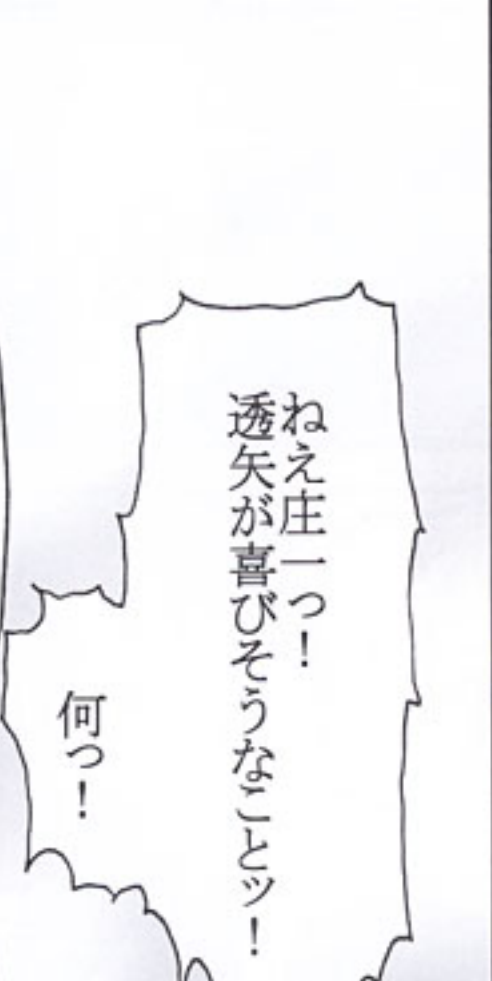 ねえ庄一っ！
透矢が喜びそうなことッ！
何っ！